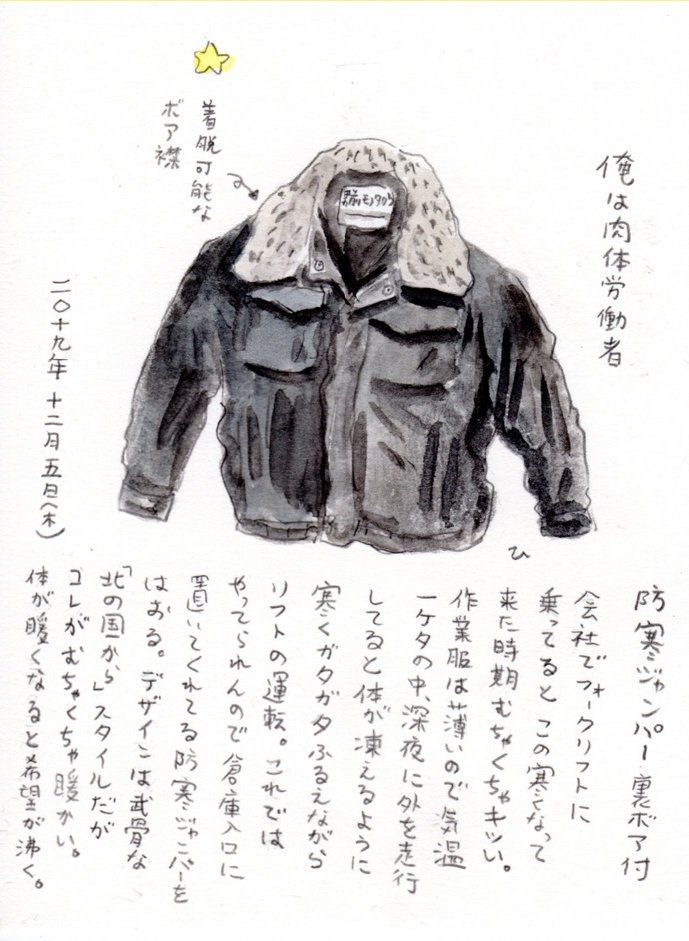 俺は肉体労働者
着脱可能な
ボア襟
二〇十九年 十二月五日(木)
ひ
防寒ジャンパー裏ボア付
会社でフォークリフトに
乗ってるとこの寒くなって
来た時期むちゃくちゃキツい。
作業服は薄いので気温
一ケタの中、深夜に外を走行
してると体が凍えるように
寒くガタガタふるえながら
リフトの運転。これでは
やってられんので倉庫入口に
置いてくれてる防寒ジャンパーを
はおる。デザインは武骨な
「北の国から」スタイルだが
コレがむちゃくちゃ暖かい。
体が暖くなると希望が沸く。